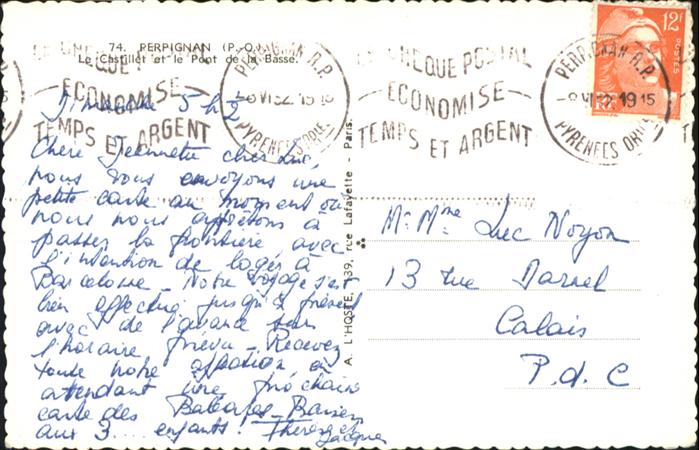 74. PERPIGNAN (P.-O.)
Le Castillet et le Pont de la Basse.
LE CHEQUE POSTAL
ECONOMISE
TEMPS ET ARGENT
PERPIGNAN R.P.
-8 VI 52 1915
PYRENEES ORIES
LE CHEQUE POSTAL
ECONOMISE
TEMPS ET ARGENT
PERPIGNAN R.P.
-8 VI 52 1915
PYRENEES ORIES
12F
POSTES
Dimanche 5h2
Chère Jeannette cher Luc,
nous vous envoyons une
petite carte au moment où
nous nous apprêtons à
passer la frontière avec
l'intention de loger à
Barcelone. Notre voyage s'est
bien effectué jusqu'à présent
avec de l'avance sur
l'horaire prévu. Recevez
toute notre affection en
attendant une prochaine
carte des Baléares. Baisers
aux 3.... enfants! Thérèse et
Jacques
A. L'HOSTE, 139, rue Lafayette - Paris.
Mr Mme Luc Noyon
13 rue Darnel
Calais
P. d. C